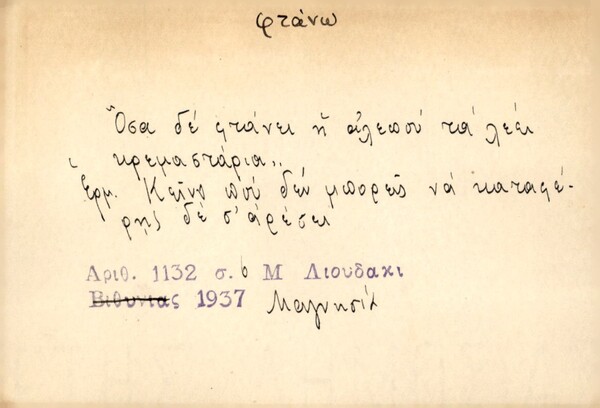 φτάνω
Ὅσα δέ φτάνει ἡ ἀλεπού τά λέει
κρεμαστάρια..
Ἑρμ. Κεῖνο πού δέν μπορεῖς νά καταφέ-
ρῃς δέ σ' ἀρέσει
Αριθ. 1132 σ. 6 Μ Λιουδακι
Βιθυνιας 1937 Μαγνησία